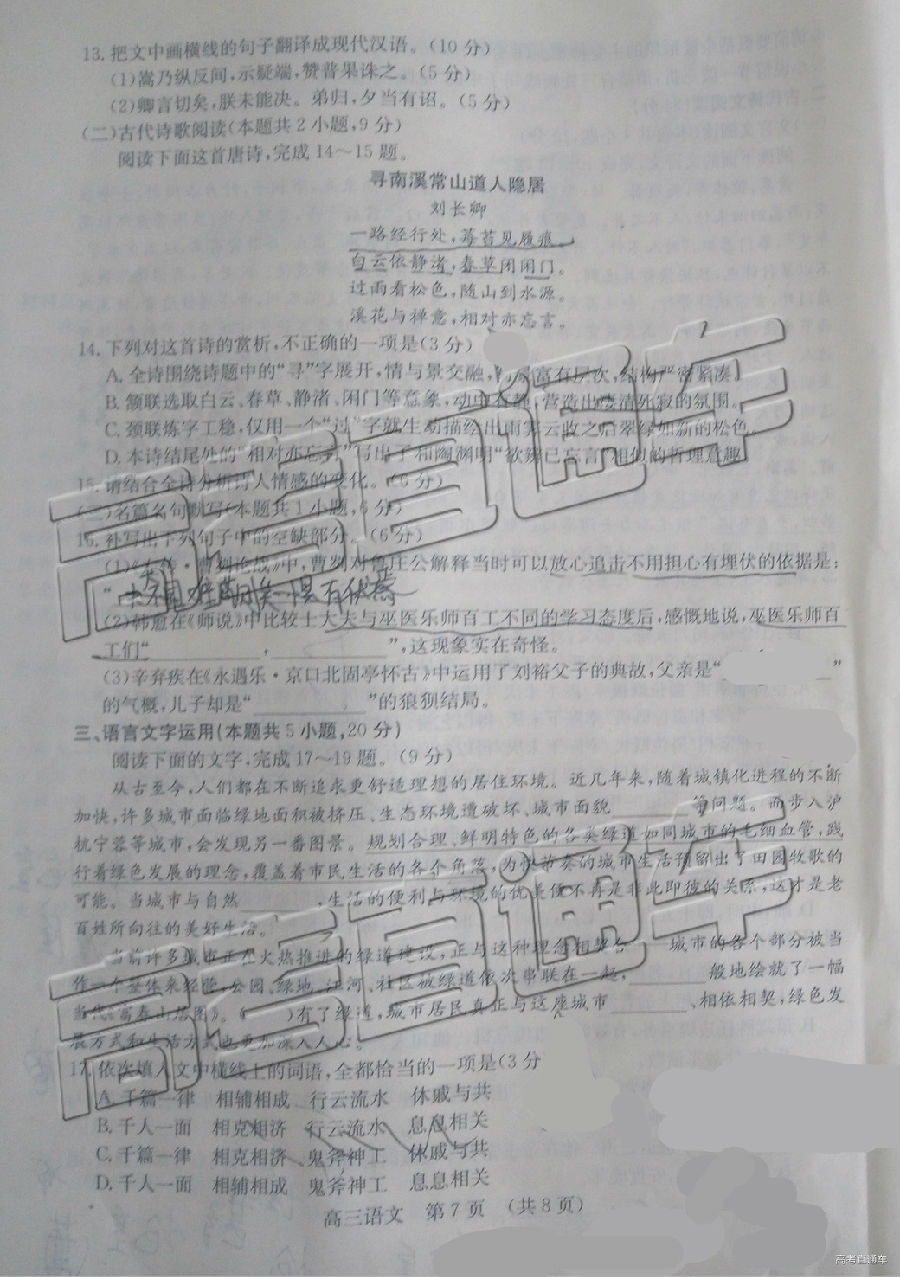 13.把文中画横线的句子翻译成现代汉语。(10分)
(1)嵩乃纵反间,示疑端,赞普果诛之。(5分)
(2)卿言切矣,朕未能决。弟归,夕当有诏。(5分)
(二)古代诗歌阅读(本题共2小题,9分)
阅读下面这首唐诗,完成14～15题。
寻南溪常山道人隐居
刘长卿
一路经行处,莓苔见履痕。
白云依静渚,春草闭闲门。
过雨看松色,随山到水源。
溪花与禅意,相对亦忘言。
14.下列对这首诗的赏析,不正确的一项是(3分)
A.全诗围绕诗题中的“寻”字展开,情与景交融,富有层次,结构严密紧凑
B.颔联选取白云、春草、静渚、闲门等意象,动中有静,营造出凄清死寂的氛围。
C.颈联炼字工稳,仅用一个“过”字就生动描绘出雨霁云收之后翠绿如新的松色
D.本诗结尾处的“相对亦忘言”写出了和陶渊明“欲辨已忘言”相似的哲理意趣
15.请结合全诗分析诗人情感的变化。(6分)
(三)名篇名句默写(本题共1小题,6分)
16.补写出下列句子中的空缺部分。(6分)
(1)《左传·曹刿论战》中,曹刿对鲁庄公解释当时可以放心追击不用担心有埋伏的依据是:
“
(2)韩愈在《师说》中比较士大夫与巫医乐师百工不同的学习态度后,感慨地说,巫医乐师百
工们“ , ”,这现象实在奇怪。
(3)辛弃疾在《永遇乐·京口北固亭怀古》中运用了刘裕父子的典故,父亲是“ ”
的气概,儿子却是“ ”的狼狈结局。
三、语言文字运用(本题共5小题,20分)
阅读下面的文字,完成17～19题。(9分)
从古至今,人们都在不断追求更舒适理想的居住环境。近几年来,随着城镇化进程的不断
加快,许多城市面临绿地面积被挤压、生态环境遭破坏、城市面貌 等问题。而步入沪
杭宁蓉等城市,会发现另一番图景。规划合理、鲜明特色的各类绿道如同城市的毛细血管,践
行着绿色发展的理念,覆盖着市民生活的各个角落,为快节奏的城市生活预留出了田园牧歌的
可能。当城市与自然 ,生活的便利与环境的优美便不再是非此即彼的关系,这才是老
百姓所向往的美好生活。
当前许多城市正在火热推进的绿道建设,正与这种理念相契合 城市的各个部分被当
作一个整体来经营,公园、绿地、 河、社区被绿道依次串联在一起, 般地绘就了一幅
当代《富春山居图》。( )有了绿道,城市居民真正与这座城市 、相依相契,绿色发
展方式和生活方式也更加深入人心。
17.依次填入文中横线上的词语,全都恰当的一项是(3分
A.千篇一律 相辅相成 行云流水 休戚与共
B.千人一面 相克相济 行云流水 息息相关
C.千篇一律 相克相济 鬼斧神工 休戚与共
D.千人一面 相辅相成 鬼斧神工 息息相关
高三语文 第7页 (共8页)
高考直通车
高考直通车
高考直通车